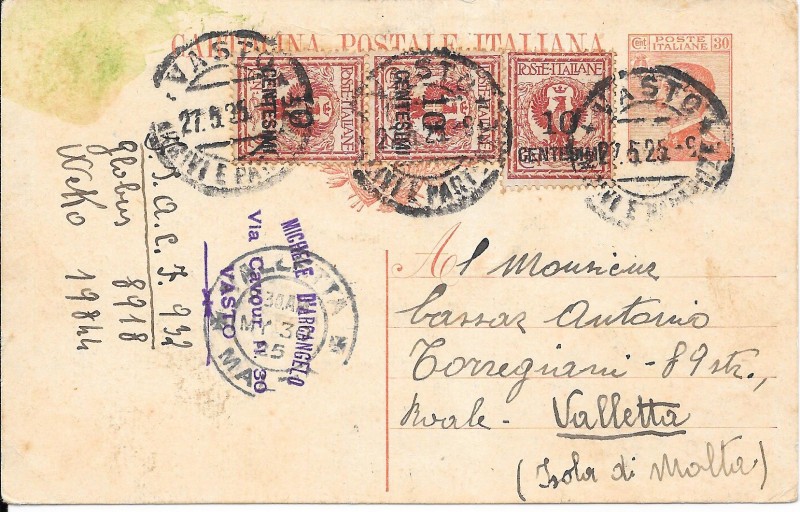 CARTOLINA POSTALE ITALIANA
Cent POSTE ITALIANE 30
POSTE·ITALIANE
10
CENTESIMI
POSTE·ITALIANE
10
CENTESIMI
POSTE·ITALIANE
10
CENTESIMI
VASTO
27.5.25
ARRIVI E PART
VASTO
ARRIVI E PART
VASTO
27.5.25
I. S. A. L. J. 932
globus 8918
Neko 19844
MICHELE D'ARCANGELO
Via Cavour N. 30
VASTO
VALLETTA
MY 30
25
MALTA
Al Monsieur
Cassar Antonio
Torregiani - 89 str.,
Roale - Valletta
(Isola di Malta)